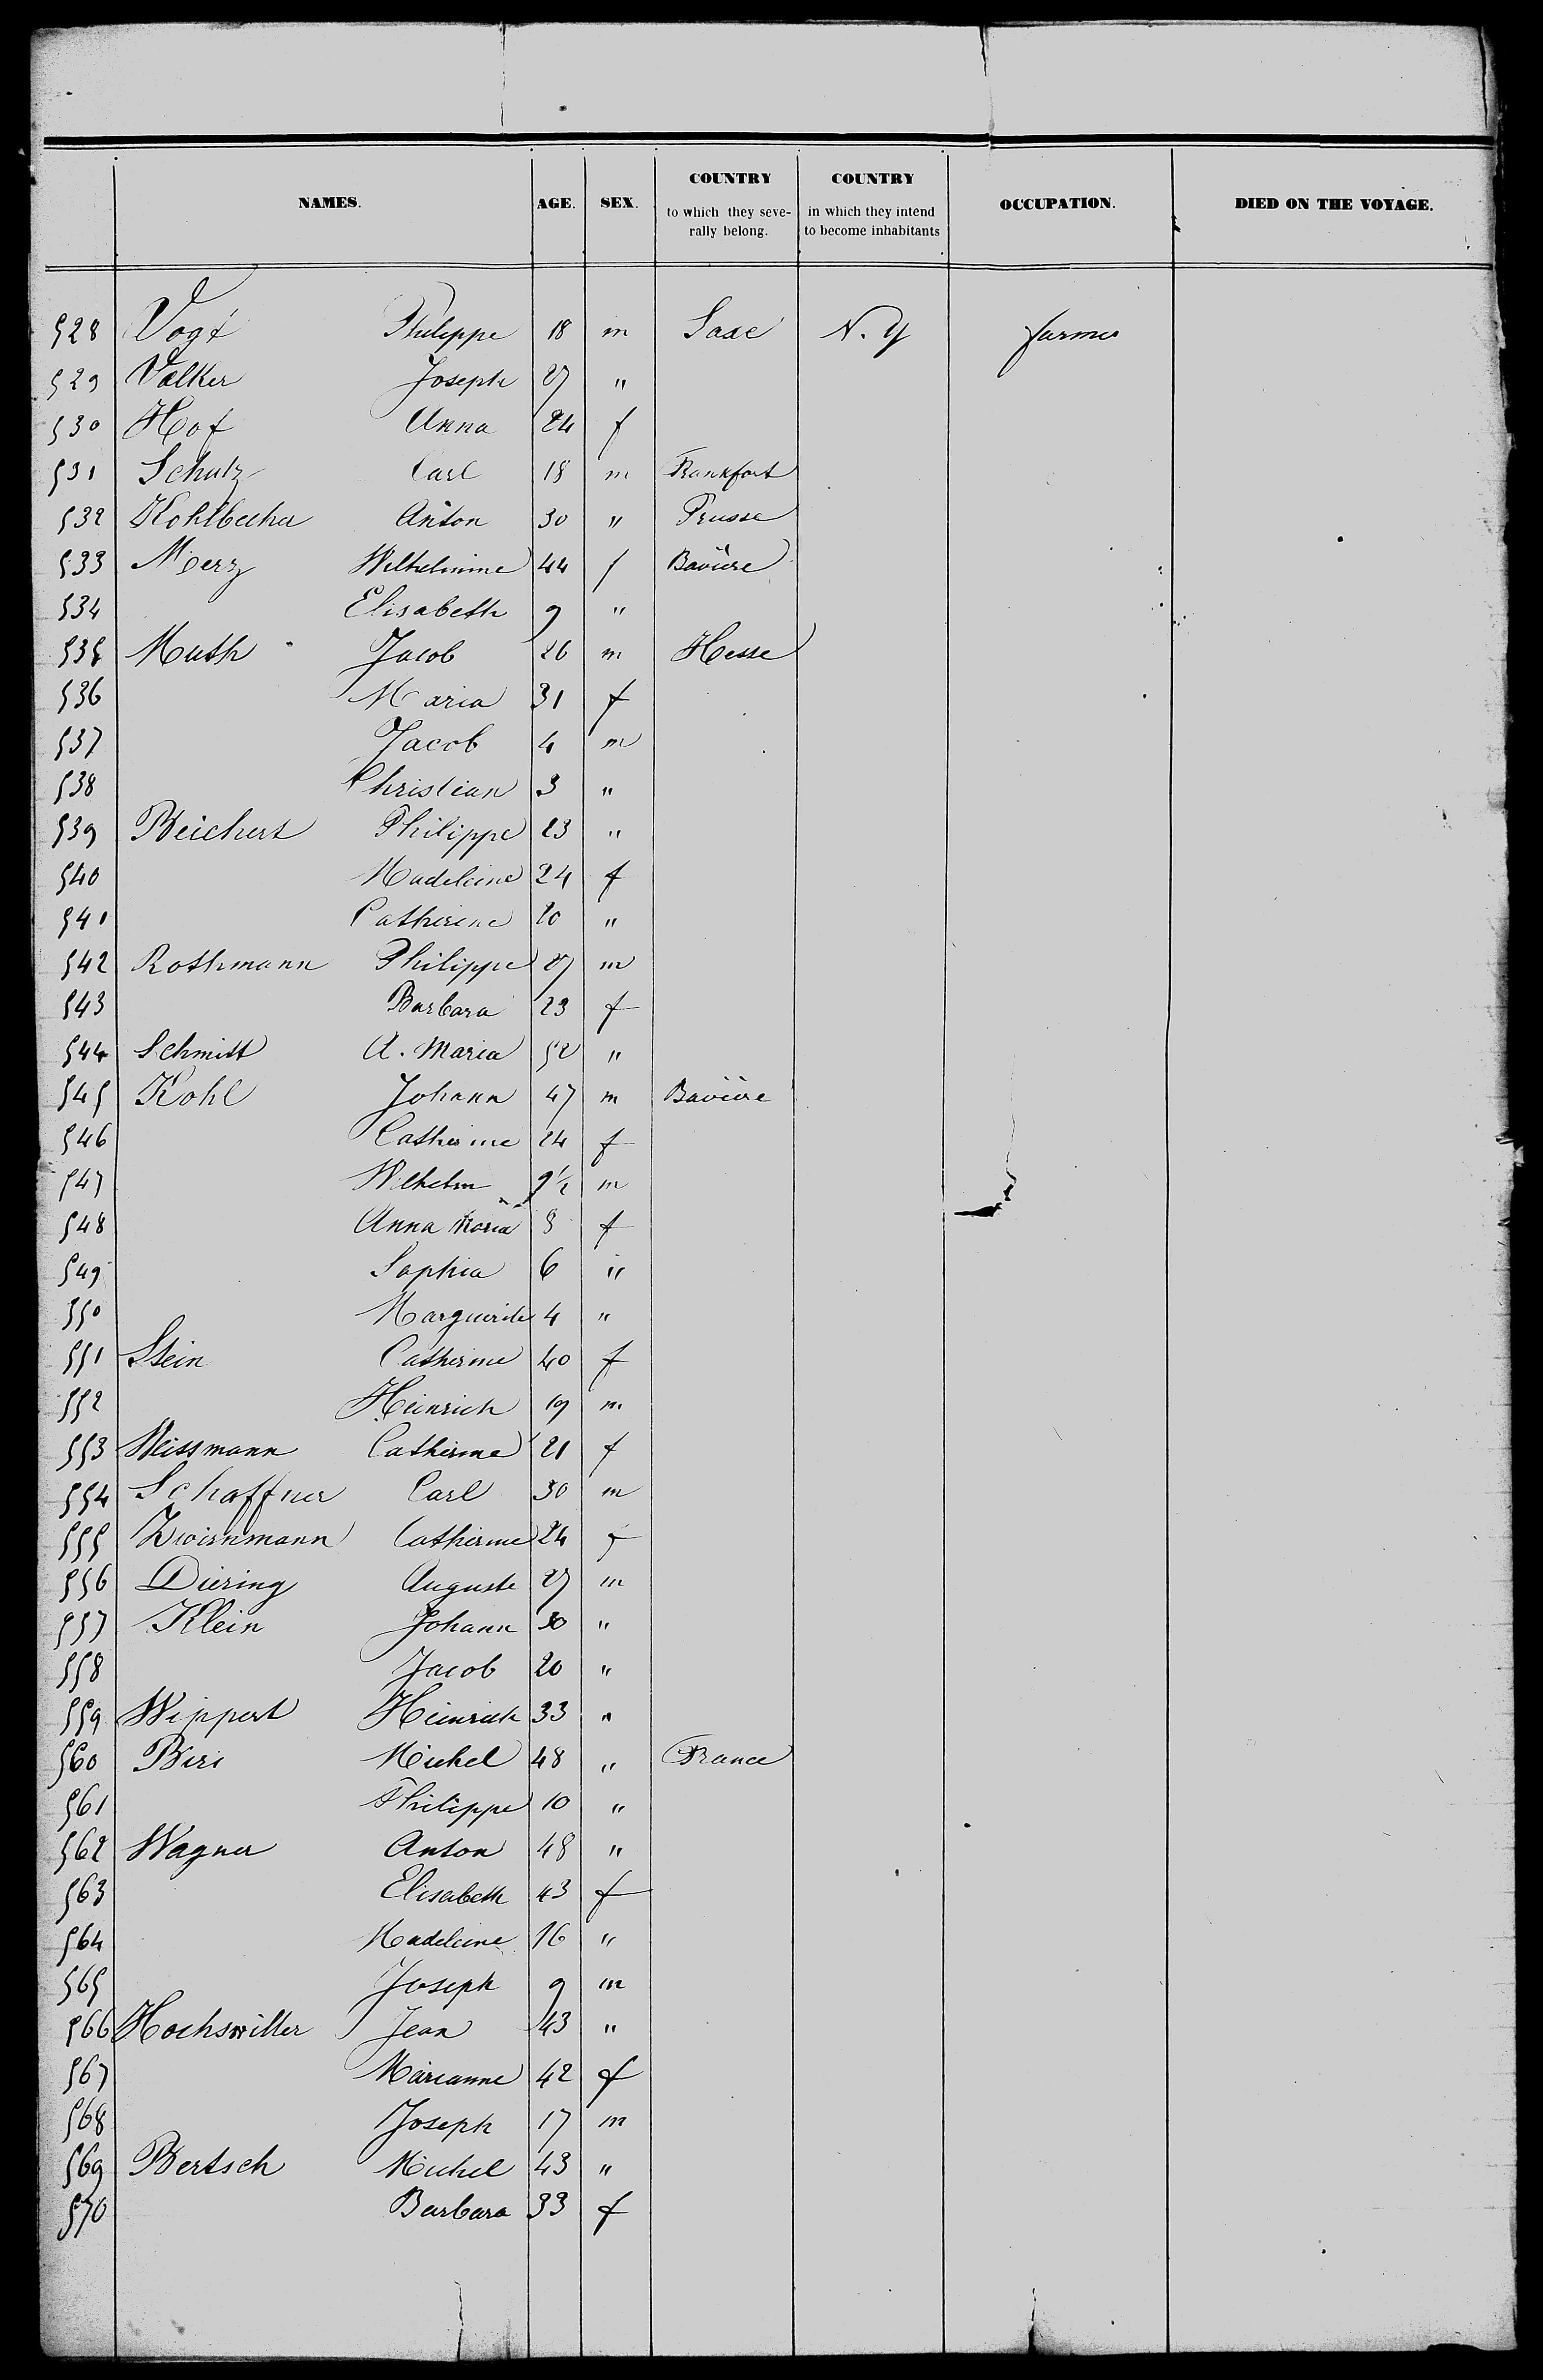 NAMES. AGE. SEX. COUNTRY to which they seve- rally belong. COUNTRY in which they intend to become inhabitants OCCUPATION. DIED ON THE VOYAGE.
528 Vogt Philippe 18 m Saxe N. Y farmer
529 Valker Joseph 27 "
530 Hof Anna 24 f
531 Schulz Carl 18 m Frankfort
532 Kohlbecher Anton 30 " Prusse
533 Merz Wilhelmine 44 f Bavière
534 Elisabeth 9 "
535 Muth Jacob 26 m Hesse
536 Maria 31 f
537 Jacob 4 m
538 Christian 3 "
539 Beichert Philippe 23 "
540 Madeleine 24 f
541 Catherine 20 "
542 Rothmann Philippe 27 m
543 Barbara 23 f
544 Schmitt A. Maria 52 "
545 Kohl Johann 47 m Bavière
546 Catherine 24 f
547 Wilhelm 9½ m
548 Anna Maria 8 f
549 Sophia 6 "
550 Marguerite 4 "
551 Stein Catherine 40 f
552 Heinrich 19 m
553 Weissmann Catherine 21 f
554 Schaffner Carl 30 m
555 Zwirnmann Catherine 24 f
556 Diering Auguste 27 m
557 Klein Johann 30 "
558 Jacob 20 "
559 Wippert Heinrich 33 "
560 Biri Michel 48 " France
561 Philippe 10 "
562 Wagner Anton 48 "
563 Elisabeth 43 f
564 Madeleine 16 "
565 Joseph 9 m
566 Hochswiller Jean 43 "
567 Marianne 42 f
568 Joseph 17 m
569 Bertsch Michel 43 "
570 Barbara 33 f